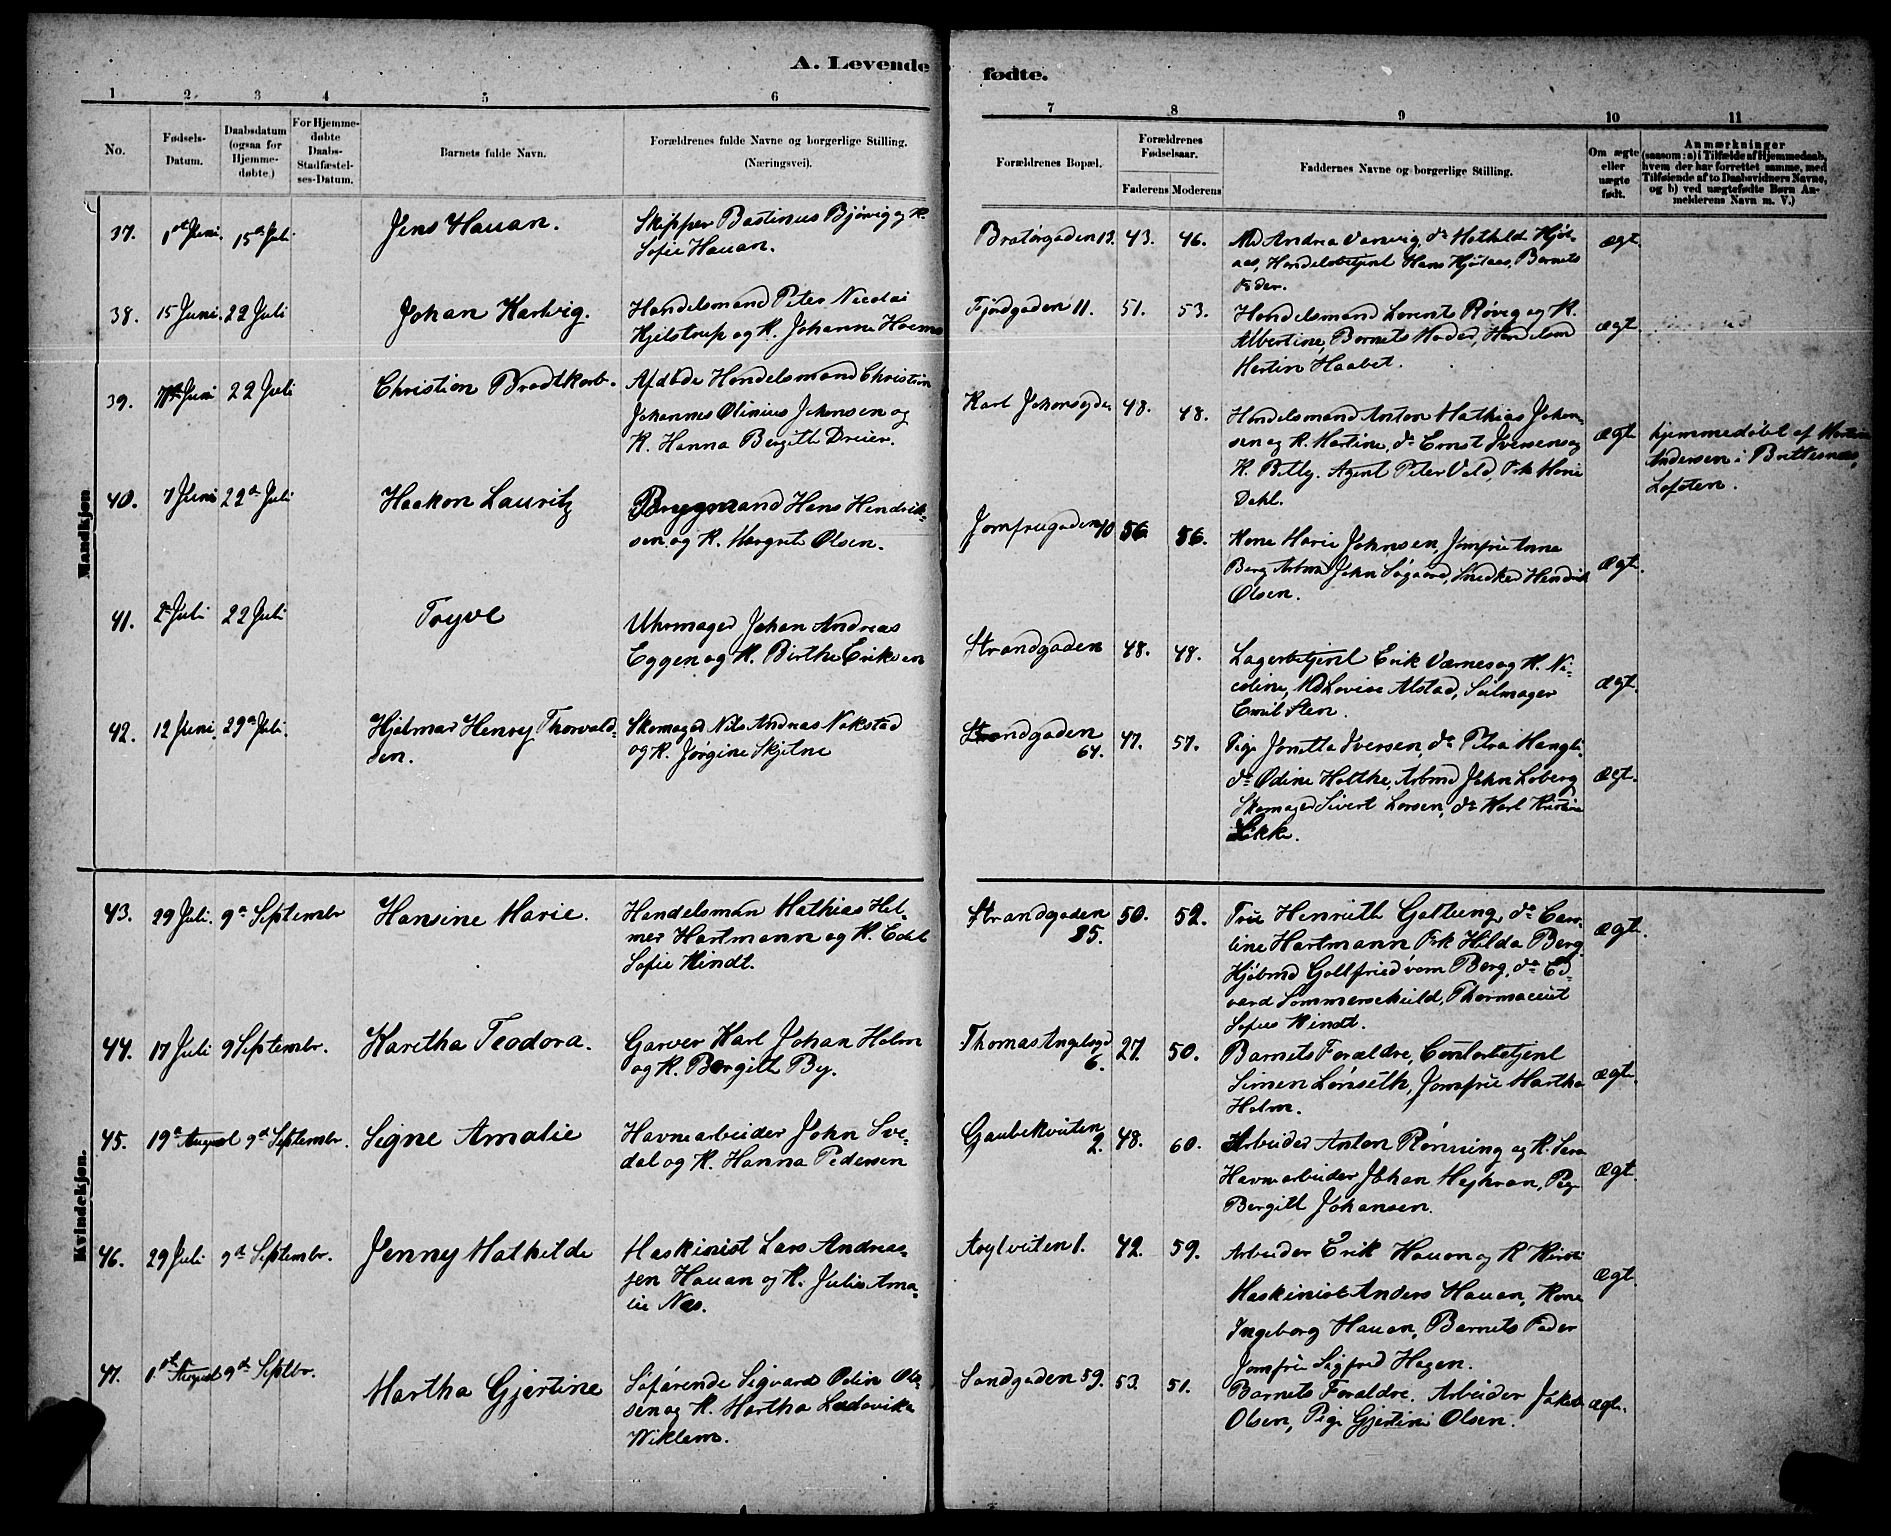 A. Levende fødte.
1 2 3 4 5 6 7 8 9 10 11
No.
Fødsels-
Datum.
Daabsdatum
(ogsaa for
Hjemme-
døbte.)
For Hjemme-
døbte
Daabs-
Stadfæstel-
ses-Datum.
Barnets fulde Navn.
Forældrenes fulde Navne og borgerlige Stilling.
(Næringsvei).
Forældrenes Bopæl.
Forældrenes
Fødselsaar.
Faderens Moderens
Faddernes Navne og borgerlige Stilling.
Om ægte
eller
uægte
født.
Anmærkninger
(saasom: a) i Tilfælde af Hjemmedaab,
hvem der har forrettet samme, med
Tilføiende af to Daabsvidners Navne,
og b) ved uægtefødte Børn An-
melderens Navn m. V.)
Mandkjøn
37. 1ste Juni 15de Juli Jens Hauan.
Skipper Bastinus Bjørvig og K.
Sofie Hauan.
Bratørgaden 13. 43. 46.
Md Andrea Varvig, do Mathilde Hjøl-
aas, Handelsbetjent Hans Hjølaas, Barnets
Fader.
ægt.
38. 15 Juni. 22 Juli Johan Hartvig.
Handelsmand Peter Nicolai
Kjelstrup og K. Johanne
Fjordgaden 11. 51. 53.
Handelsmand Lorents Røvig og K.
Albertine, Barnets Moder, Handelsm
Martin Haabet.
ægt.
39. Juni 22 Juli Christian Bradtkorb.
Afdøde Handelsmand Christian
Johannes Olinius Johnsen og
K. Hanna Bergith Dreier.
Karl Johansgden 48. 48.
Handelsmand Anton Mathias Johan-
sen og K. Martine, do Ernst Iversen og
K. Betty. Agent Peter Vold, Frk Marie
Dahl.
ægt
hjemmedøbt af
Andersen i Brettesnæs,
Lofoten.
40. 7 Juni 22de Juli Haakon Lauritz
Bryggmand Hans Hendrik-
sen og K. Margrete Olsen.
Jomfrugaden 10 56. 56.
Kone Marie Johnsen, Jomfru Anna
Berg Arbmd John Søgaard, Snedker Hendrik
Olsen.
ægt.
41. 2de Juli 22 Juli Tryve
Uhrmager Johan Andreas
Eggen og K. Birthe Eriksen
Strandgaden 48. 48.
Lagerbetjent Erik Værnes og K. Ni-
coline, Md Lovise Alstad, Seilmager
Emil Sten.
ægt.
42. 12 Juni. 29de Juli. Hjelmar Henry Thorvald-
sen.
Skomager Nils Andreas Nakstad
og K. Jørgine Skjetne
Strandgaden
64. 47. 57.
Pige Jonetta Iversen, do Petra Haugli
do Odine Holthe, Arbmd John Loberg
Skomager Sivert Larsen, do Karl Kristian
Løkke.
ægt.
Kvindekjøn.
43. 29 Juli. 9de Septembr Hansine Marie.
Handelsman Mathias Hel-
mer Hartmann og K. Edel
Sofie Kindt.
Strandgaden
35. 50. 52.
Frue Henriette Gottung, do Caro-
line Hartmann Frk Hilda Berg
Kjøbmd Gottfried vom Berg, do Ed-
vard Sommerschild, Pharmaceut
Sofus Kindt.
ægt.
44. 17 Juli 9 Septembr. Haretha Teodora.
Garver Karl Johan Holm
og K. Bergith By.
Thomas Angelsgd
6. 27. 50.
Barnets Forældre, Contorbetjent
Simen Lønseth, Jomfru Martha
Holm.
ægt.
45. 19de August 9de Septembr. Signe Amalie
Havnearbeider John Sve-
dal og K. Hanna Pedersen
Gaubekveiten
2. 48. 60.
Arbeider Anton Rønning og K. Sara
Havnearbeider Johan Mehran, Pige
Bergitt Johansen.
ægt.
46. 29 Juli 9de Septembr. Jenny Mathilde
Maskinist Lars Andrea-
sen Hauan og K. Julie Ama-
lie Næs.
42. 59.
Arbeider Erik Hauan og K
Maskinist Anders Hauan, Kone
Ingeborg Hauan, Barnets Fader
Jomfru Sigfred Hagen.
ægt.
47. 1ste August 9de Septbr. Martha Gjertine
Søfarende Sigvard Odin Ol-
sen og K. Martha Ludovika
Wiklem.
Sandgaden 59. 53. 51.
Barnets Forældre. Arbeider Jakob
Olsen, Pige Gjertine Olsen.
ægt.